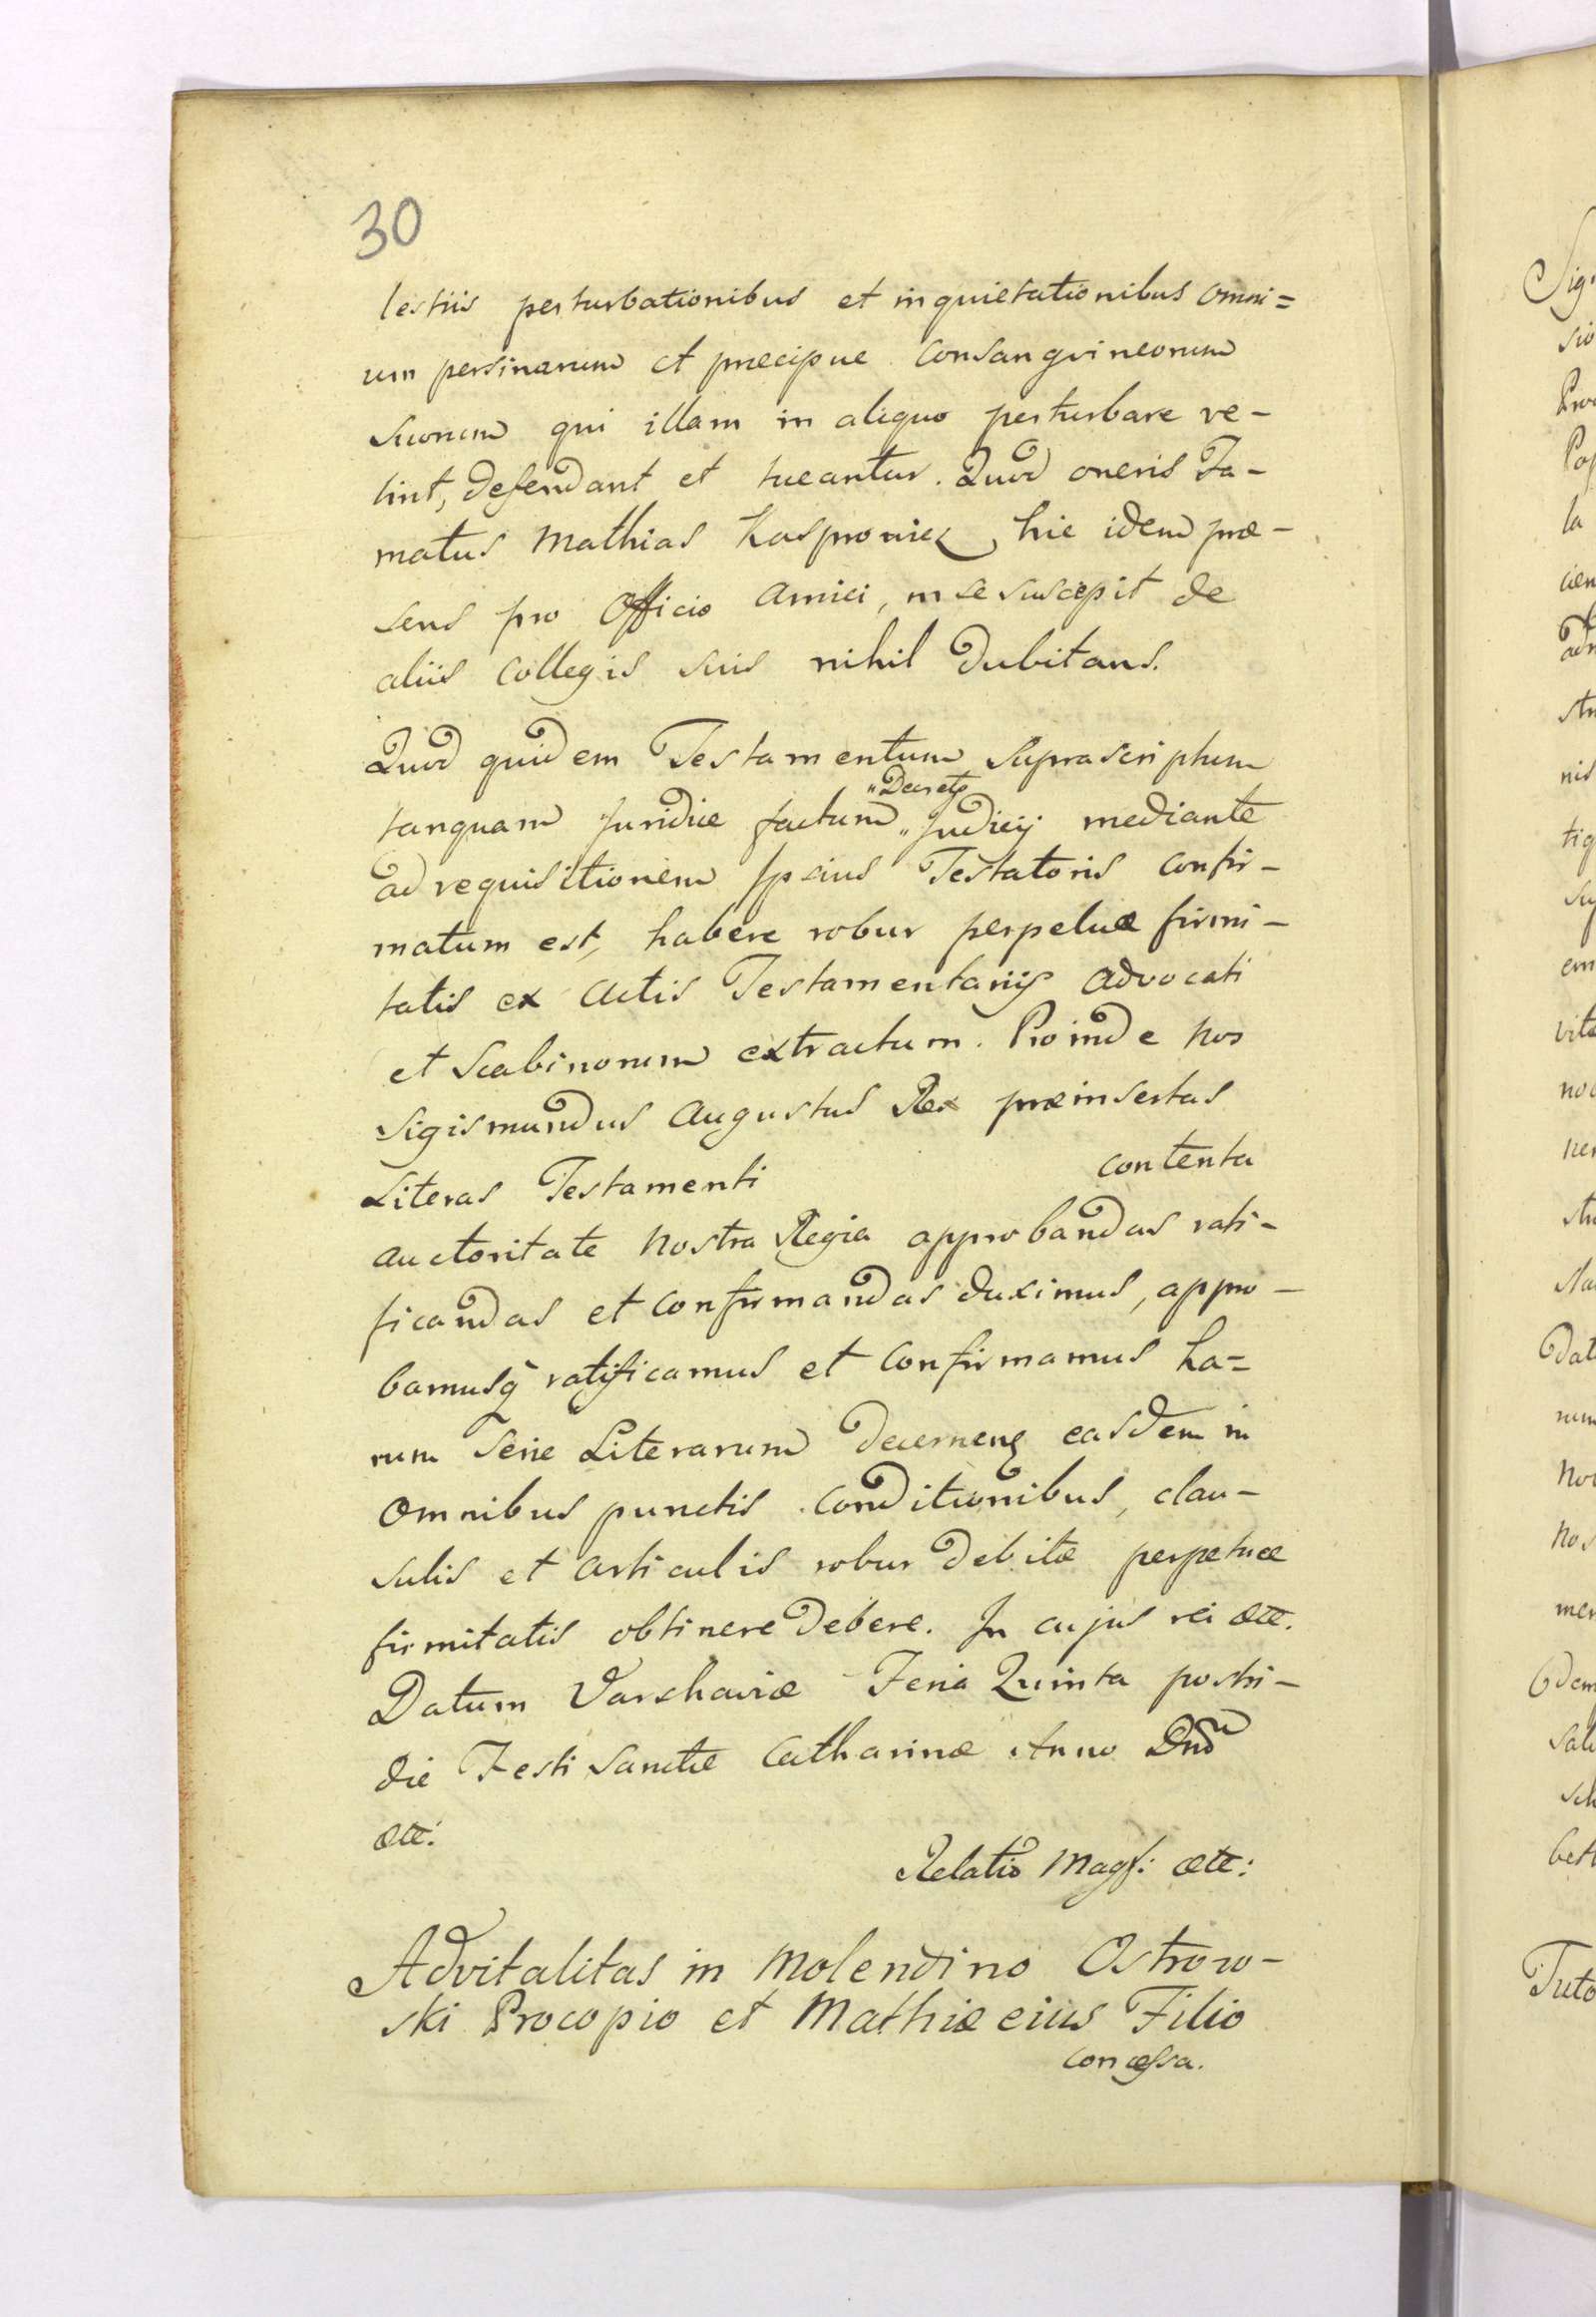 30
lestiis perturbationibus et inquietationibus omni=
um persinarum et præcipue Consangvineorum
suorum qui illam in aliquo perturbare ve-
lint, defendant et tueantur. Quod oneris Fa-
matus Mathias Kasprowicz, hic idem præ-
sens pro Officio Amici, in se suscepit de
aliis Collegis suis nihil dubitans.
Quod quidem Testamentum suprascriptum
tanquam Juridice factum „Decreto„ Judicij mediante
ad requisitionem Ipsius Testatoris confir-
matum est, habere robur perpetuæ firmi-
tatis ex Actis Testamentarijs Advocati
et Scabinorum extractum. Proinde Nos
Sigismundus Augustus Rex præinsertas
Literas Testamenti contenta
auctoritate Nostra Regia approbandas rati-
ficandas et confirmandas duximus, appro-
bamusq̃ ratificamus et confirmamus ha=
rum Serie Literarum decernenς easdem in
omnibus punctis conditionibus, clau-
sulis et articulis robur debitæ perpetuæ
firmitatis obtinere debere. In cujus rei ætt.
Datum Varschaviæ Feria Quinta postri-
die Festi Sanctæ Catharinæ Anno Dnō
ætt:
Relatio Magf: ætt:
Advitalitas in Molendino Ostrow-
ski Procopio et Mathiæ eius Filio
concessa.